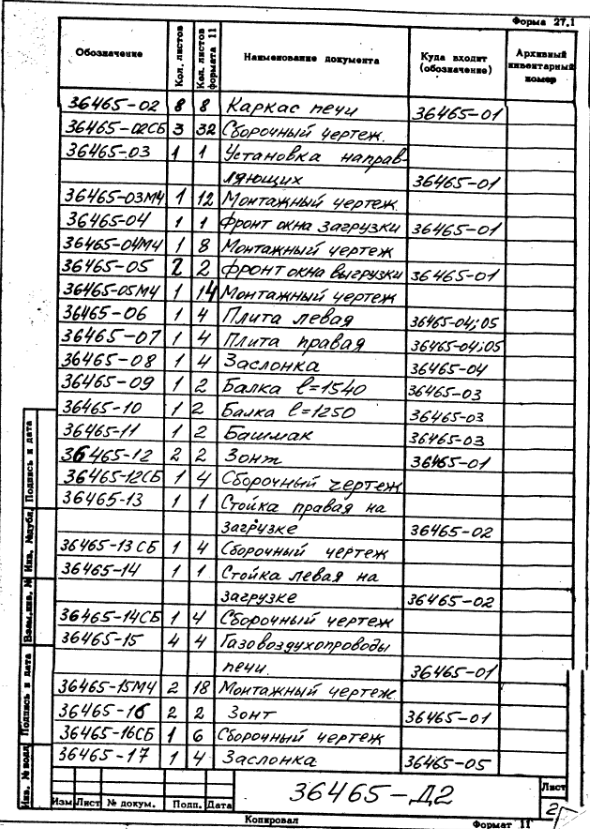 Форма 27.1
Обозначение Кол. листов Кол. листов формата 11 Наименование документа Куда входит (обозначение) Архивный инвентарный номер
36465-02 8 8 Каркас печи 36465-01
36465-02СБ 3 32 Сборочный чертеж.
36465-03 1 1 Установка направ-
ляющих 36465-01
36465-03МЧ 1 12 Монтажный чертеж.
36465-04 1 1 Фронт окна загрузки 36465-01
36465-04МЧ 1 8 Монтажный чертеж
36465-05 2 2 Фронт окна выгрузки 36465-01
36465-05МЧ 1 14 Монтажный чертеж
36465-06 1 4 Плита левая 36465-04;05
36465-07 1 4 Плита правая 36465-04;05
36465-08 1 4 Заслонка 36465-04
36465-09 1 2 Балка ℓ=1540 36465-03
36465-10 1 2 Балка ℓ=1250 36465-03
36465-11 1 2 Башмак 36465-03
36465-12 2 2 Зонт 36465-01
36465-12СБ 1 4 Сборочный чертеж
36465-13 1 1 Стойка правая на
загрузке 36465-02
36465-13СБ 1 4 Сборочный чертеж
36465-14 1 1 Стойка левая на
загрузке 36465-02
36465-14СБ 1 4 Сборочный чертеж
36465-15 4 4 Газовоздухопроводы
печи. 36465-01
36465-15МЧ 2 18 Монтажный чертеж
36465-16 2 2 Зонт 36465-01
36465-16СБ 1 6 Сборочный чертеж
36465-17 1 4 Заслонка 36465-05
Инв. № подл Подпись и дата Взам.инв. № Инв. №дубл. Подпись и дата
36465-Д2
Лист
2
Изм Лист № докум. Подп. Дата
Копировал Формат 11